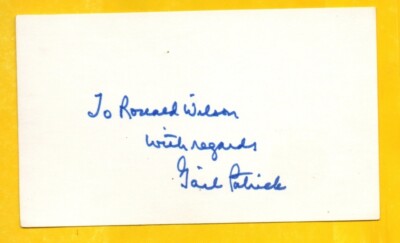 To Ronald Wilson
With regards
Gail Patrick